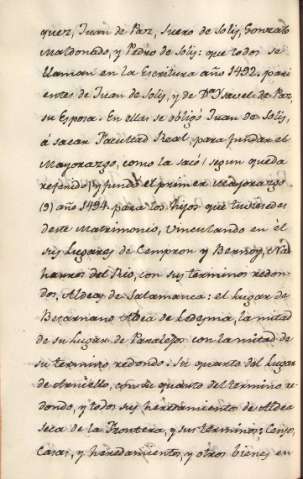 quez, Juan de Paz, suero de Solis, Gonzalo
Maldonado, y Pedro de Solis: que todos se
llaman en la Escritura año 1492. pari
entes de Juan de Solis, y de Dª Isavel de Paz
su Esposa: En ellas se obligó Juan de Solis,
á sacar Facultad Real para fundar el
Mayorazgo, como la sacó (segun queda
referido) y fundó el primer Mayorazgo
(9) año 1494. para los hijos que tuviesse de
deste Matrimonio, vinculando en él
sus lugares de Cempron y Bernoy, Na
harros del Rio, con sus terminos redon
dos, Aldeas de Salamanca: el lugar de
Aldea de Ledesma, la mitad
de su lugar de Canalejas con la mitad de
su termino redondo: su quarto del lugar
de con su quarto del termino re
dondo, y todos sus heredamientos de Aldea
seca de la Frontera, y sus terminos; Censos,
Casas, y heredamientos, y otros bienes en